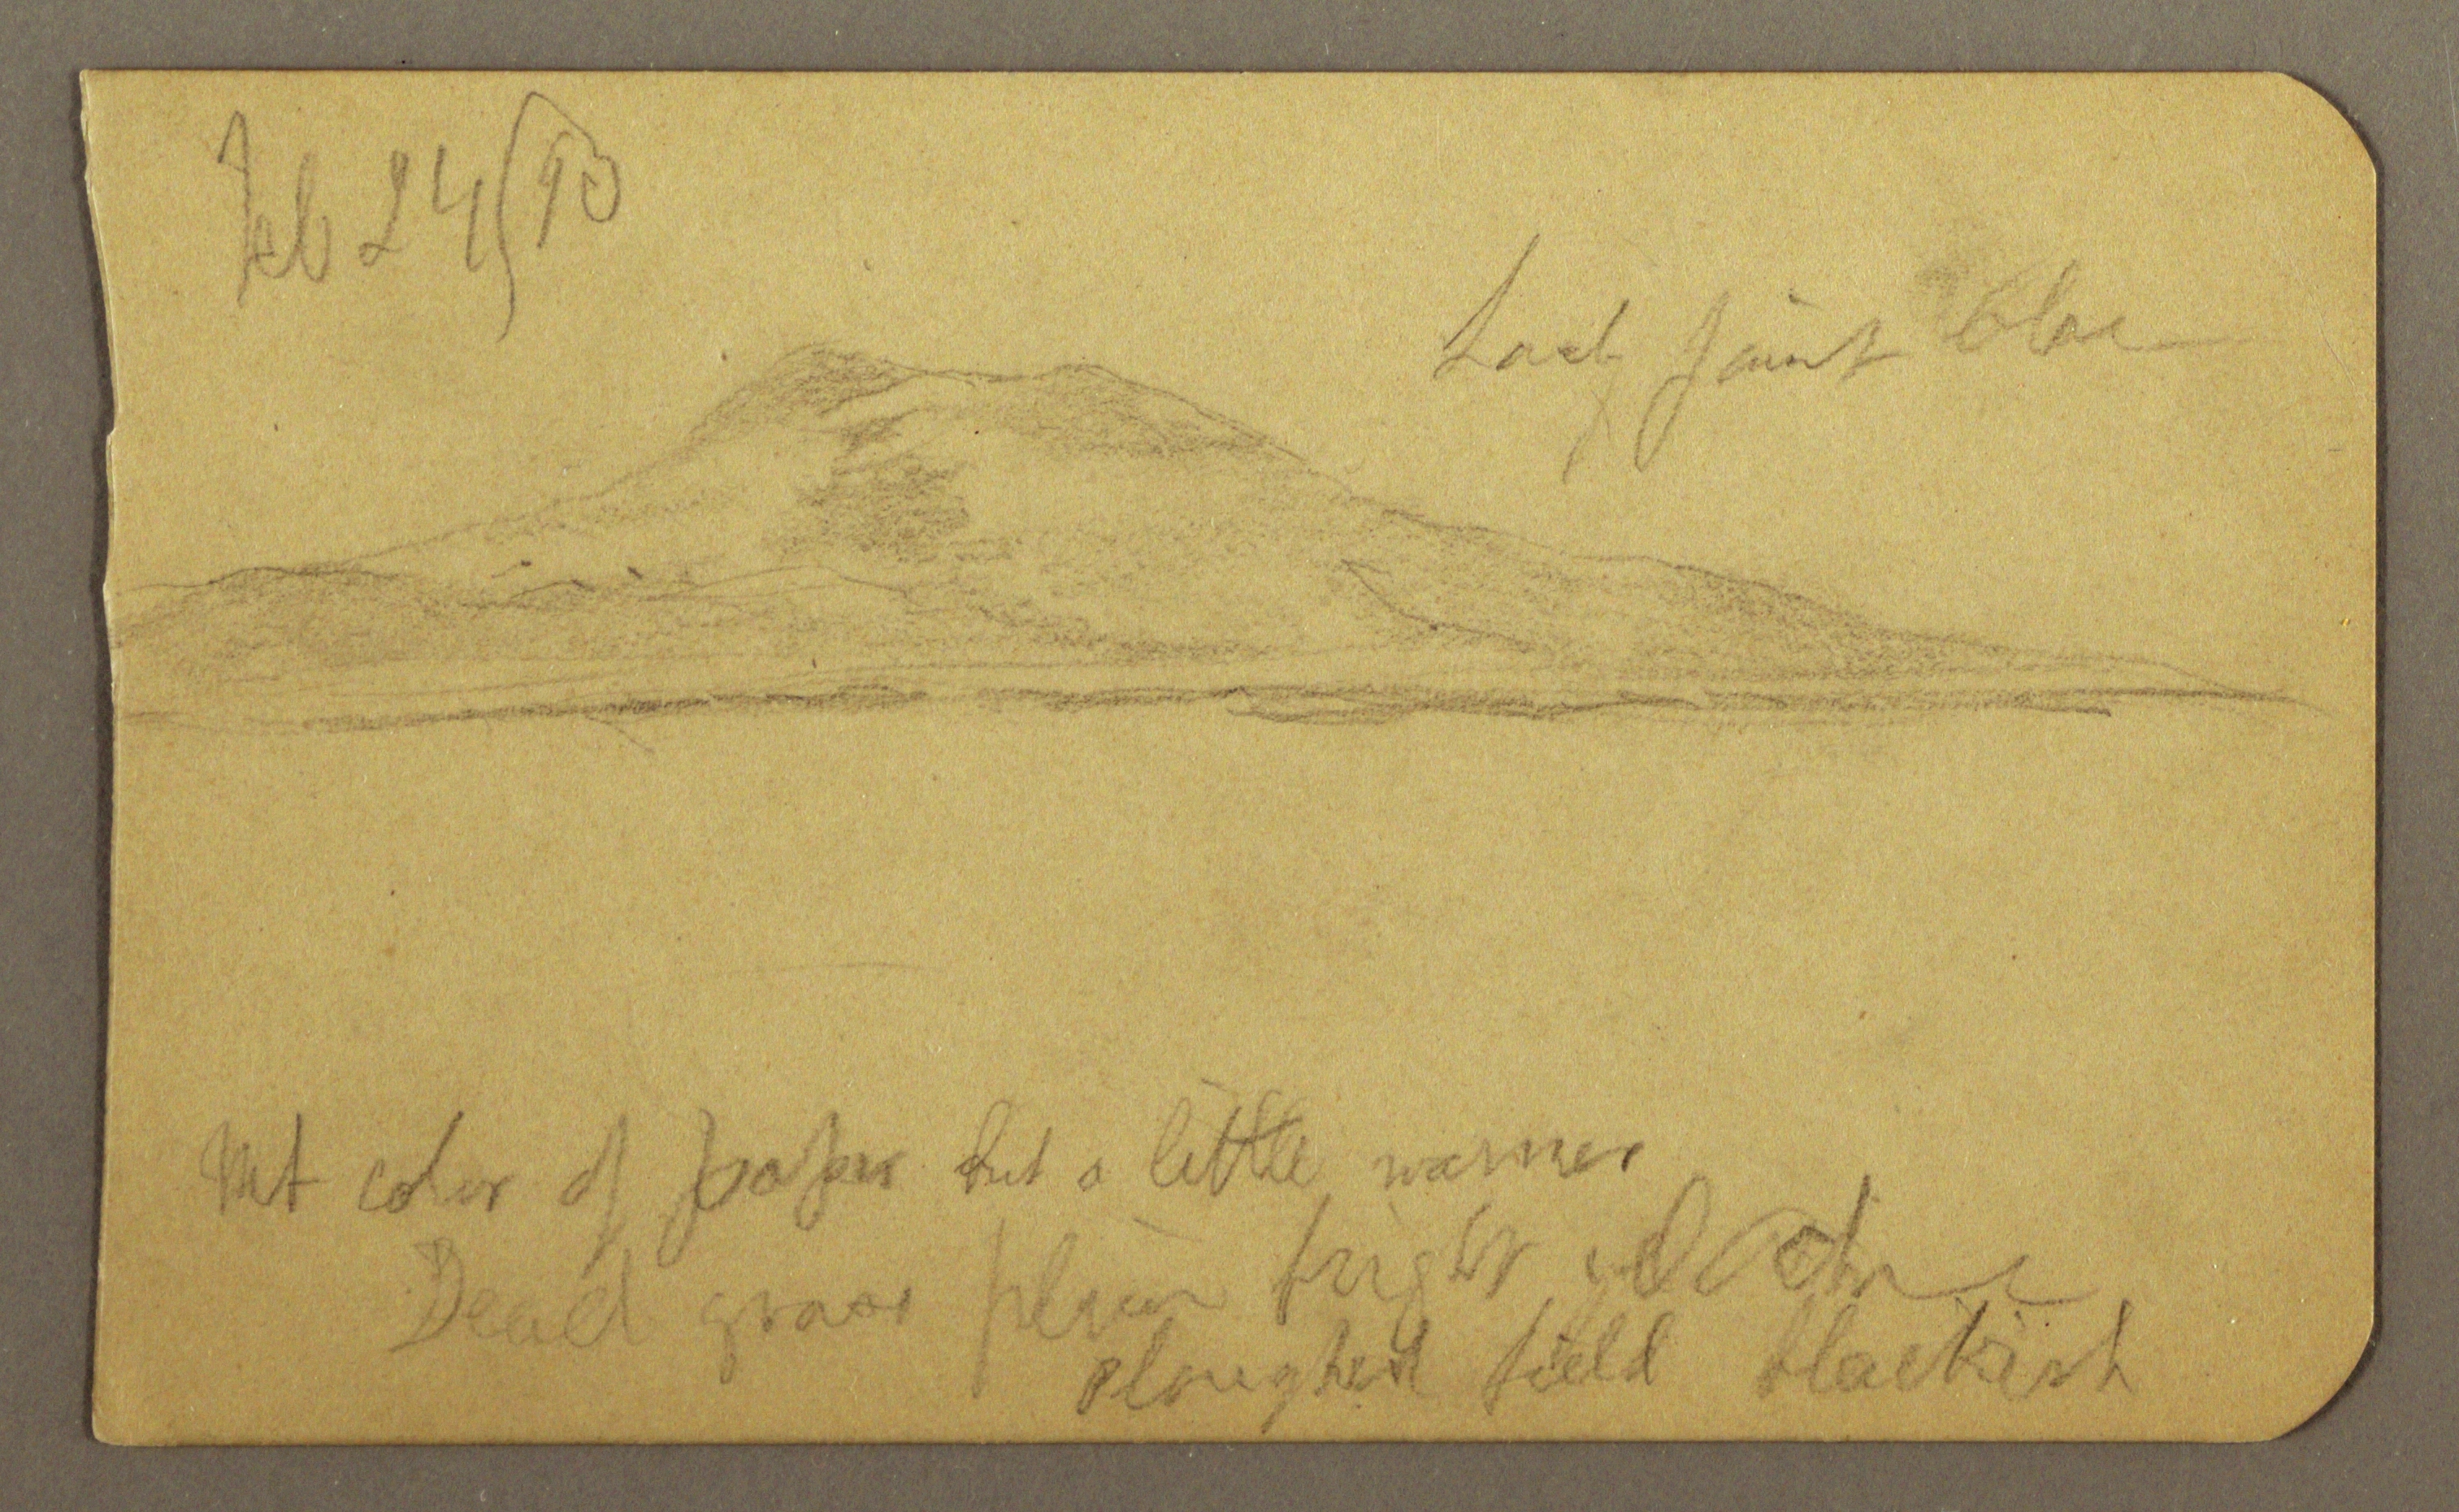 Feb 24/93
faint blue
Mt color of paper but a little warmer
Dead grass plain bright yel ochre
ploughed field blackish